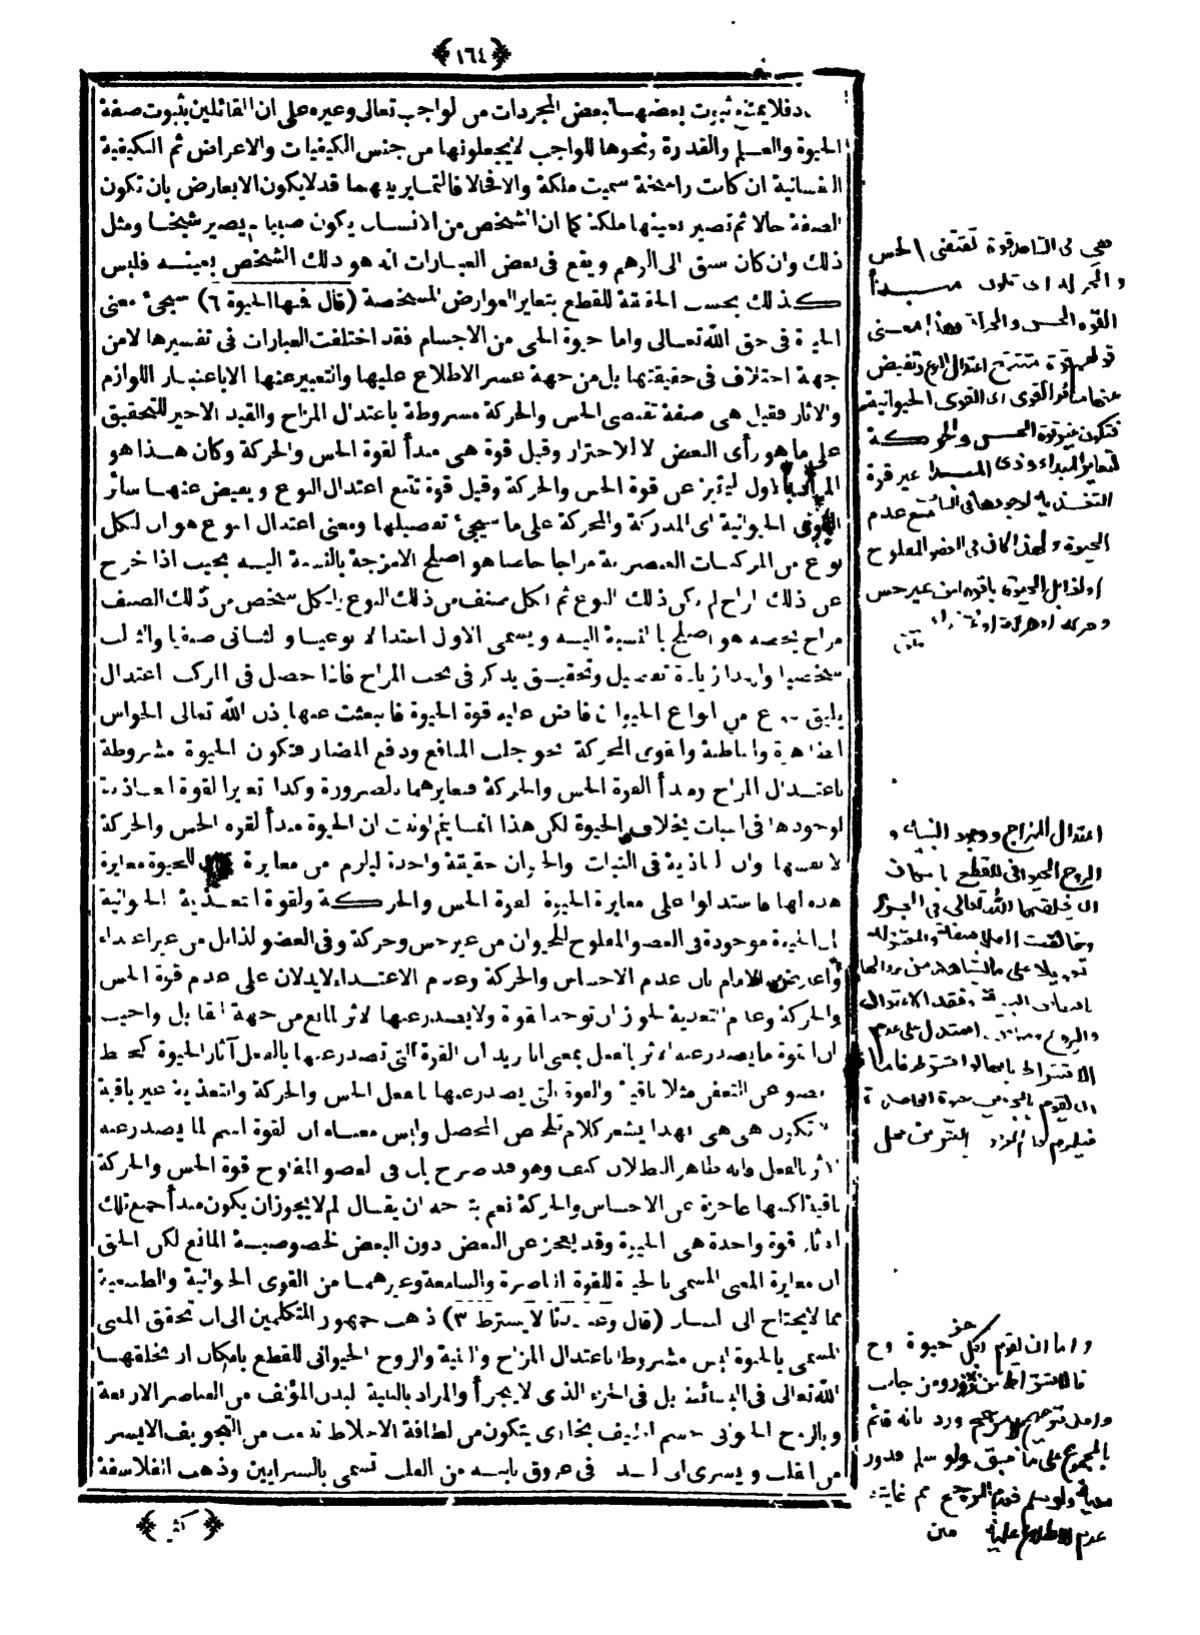 ﴿ ١٦٤ ﴾
فلا يمتنع ثبوت بعضها لبعض المجردات من الواجب تعالى وغيره على ان القائلين بثبوت صفة
الحيوة والعلم والقدرة ونحوها للواجب لا يجعلونها من جنس الكيفيات والاعراض ثم الكيفية
النفسانية ان كانت راسخة سميت ملكة والا فحالا فالتمايز بينهما قد لا يكون الا بعارض بان تكون
الصفة حالا ثم تصير بعينها ملكة كما ان الشخص من الانسان يكون صبيا ثم يصير شيخا ومثل
ذلك وان كان سبق الى الوهم ويقع فى بعض العبارات انه هو ذلك الشخص بعينه فليس
كذلك بحسب الحقيقة للقطع بتغاير العوارض المشخصة (قال فمنها الحيوة ٦) سيجئ معنى
الحيوة فى حق الله تعالى واما حيوة الحى من الاجسام فقد اختلفت العبارات فى تفسيرها لا من
جهة اختلاف فى حقيقتها بل من جهة عسر الاطلاع عليها والتعبير عنها الا باعتبار اللوازم
والاثار فقيل هى صفة تقتضى الحس والحركة مشروطة باعتدال المزاج والقيد الاخير للتحقيق
على ما هو رأى البعض لا للاحتراز وقيل قوة هى مبدأ لقوة الحس والحركة وكان هذا هو
الاول ليتميز عن قوة الحس والحركة وقيل قوة تتبع اعتدال النوع ويفيض عنها سائر
القوى الحيوانية اى المدركة والمحركة على ما سيجئ تفصيلها ومعنى اعتدال النوع هو ان لكل
نوع من المركبات العنصرية مزاجا خاصا هو اصلح الامزجة بالنسبة اليه بحيث اذا خرج
عن ذلك المزاج لم يكن ذلك النوع ثم لكل صنف من ذلك النوع ولكل شخص من ذلك الصنف
مزاج يخصه هو اصلح بالنسبة اليه ويسمى الاول اعتدالا نوعيا والثانى صنفيا والثالث
شخصيا ولهذا زيادة تفصيل وتحقيق يذكر فى بحث المزاج فاذا حصل فى المركب اعتدال
يليق بنوع من انواع الحيوان فاض عليه قوة الحيوة فانبعثت عنها باذن الله تعالى الحواس
الظاهرة والباطنة والقوى المحركة نحو جلب المنافع ودفع المضار فتكون الحيوة مشروطة
باعتدال المزاج ومبدأ لقوة الحس والحركة فتغايرهما بالضرورة وكذا تغاير القوة الغاذية
لوجودها فى النبات بخلاف الحيوة لكن هذا انما يتم لو ثبت ان الحيوة مبدأ لقوة الحس والحركة
لا نفسها وان الغاذية فى النبات والحيوان حقيقة واحدة ليلزم من مغايرة للحيوة مغايرة
هذه لها فاستدلوا على مغايرة الحيوة لقوة الحس والحركة ولقوة التغذية الحيوانية
بان الحيوة موجودة فى العضو المفلوج للحيوان من غير حس وحركة وفى العضو الذابل من غير اغتذاء
واعترض الامام بان عدم الاحساس والحركة وعدم الاغتذاء لا يدلان على عدم قوة الحس
والحركة وعدم التغذية لجواز ان توجد القوة ولا يصدر عنها الاثر لمانع من جهة القابل واجيب
بان القوة ما يصدر عنه الاثر بالفعل بمعنى انا نريد ان القوة التى تصدر عنها بالفعل آثار الحيوة كحفظ
العضو عن التعفن مثلا باقية والقوة التى يصدر عنها بالفعل الحس والحركة والتغذية غير باقية
فلا تكون هى هى بهذا يشعر كلام تلخيص المحصل وليس معناه ان القوة اسم لما يصدر عنه
الاثر بالفعل فانه ظاهر البطلان كيف وهو قد صرح بان فى العضو المفلوج قوة الحس والحركة
باقية لكنها عاجزة عن الاحساس والحركة نعم يتجه ان يقال لم لا يجوز ان يكون مبدأ جميع تلك
الاثار قوة واحدة هى الحيوة وقد يعجز عن البعض دون البعض لخصوصية المانع لكن الحق
ان مغايرة المعنى المسمى بالحيوة للقوة الباصرة والسامعة وغيرهما من القوى الحيوانية والطبيعية
مما لا يحتاج الى البيان (قال وعندنا لا يشترط ٣) ذهب جمهور المتكلمين الى ان تحقق المعنى
المسمى بالحيوة ليس مشروطا باعتدال المزاج والبنية والروح الحيوانى للقطع بامكان ان يخلقها
الله تعالى فى البسائط بل فى الجزء الذى لا يتجزأ والمراد بالبنية البدن المؤلف من العناصر الاربعة
وبالروح الحيوانى جسم لطيف بخارى يتكون من لطافة الاخلاط تنبعث من التجويف الايسر
من القلب ويسرى الى البدن فى عروق نابتة من القلب تسمى بالشرايين وذهب الفلاسفة
هى فى الشاهد قوة تقتضى الحس
والحركة اى تكون مبدأ
لقوة الحس والحركة وهذا معنى
قولهم قوة تتبع اعتدال النوع وتفيض
عنها سائر القوى اى القوى الحيوانية
فتكون غير قوة الحس والحركة
لتغاير المبدأ وذى المبدأ غير قوة
التغذية لوجودها فى النبات مع عدم
الحيوة ولهذا كان فى العضو المفلوج
او الذابل الحيوة باقية من غير حس
وحركة متن
اعتدال المزاج ووجود البنية و
الروح الحيوانى للقطع بامكان
ان يخلقها الله تعالى فى الجزء
وخالفت الفلاسفة والمعتزلة
تعويلا على ما يشاهد من زوالها
بانتقاض البنية وفقد الاعتدال
والروح استدل على عدم
الاشتراط بانها لو اشترطت فاما
ان تقوم بالجزئين حيوة واحدة
فيلزم قيام العرض باكثر من محل
واما ان تقوم بكل جزء حيوة وح
فالاشتراط من الجانبين دور ومن جانب
واحد ترجيح بلا مرجح ورد بانه قائم
بالمجموع على ما سبق ولو سلم فدور
معية ولو سلم فعدم المرجح مم غايته
عدم الاطلاع عليه متن